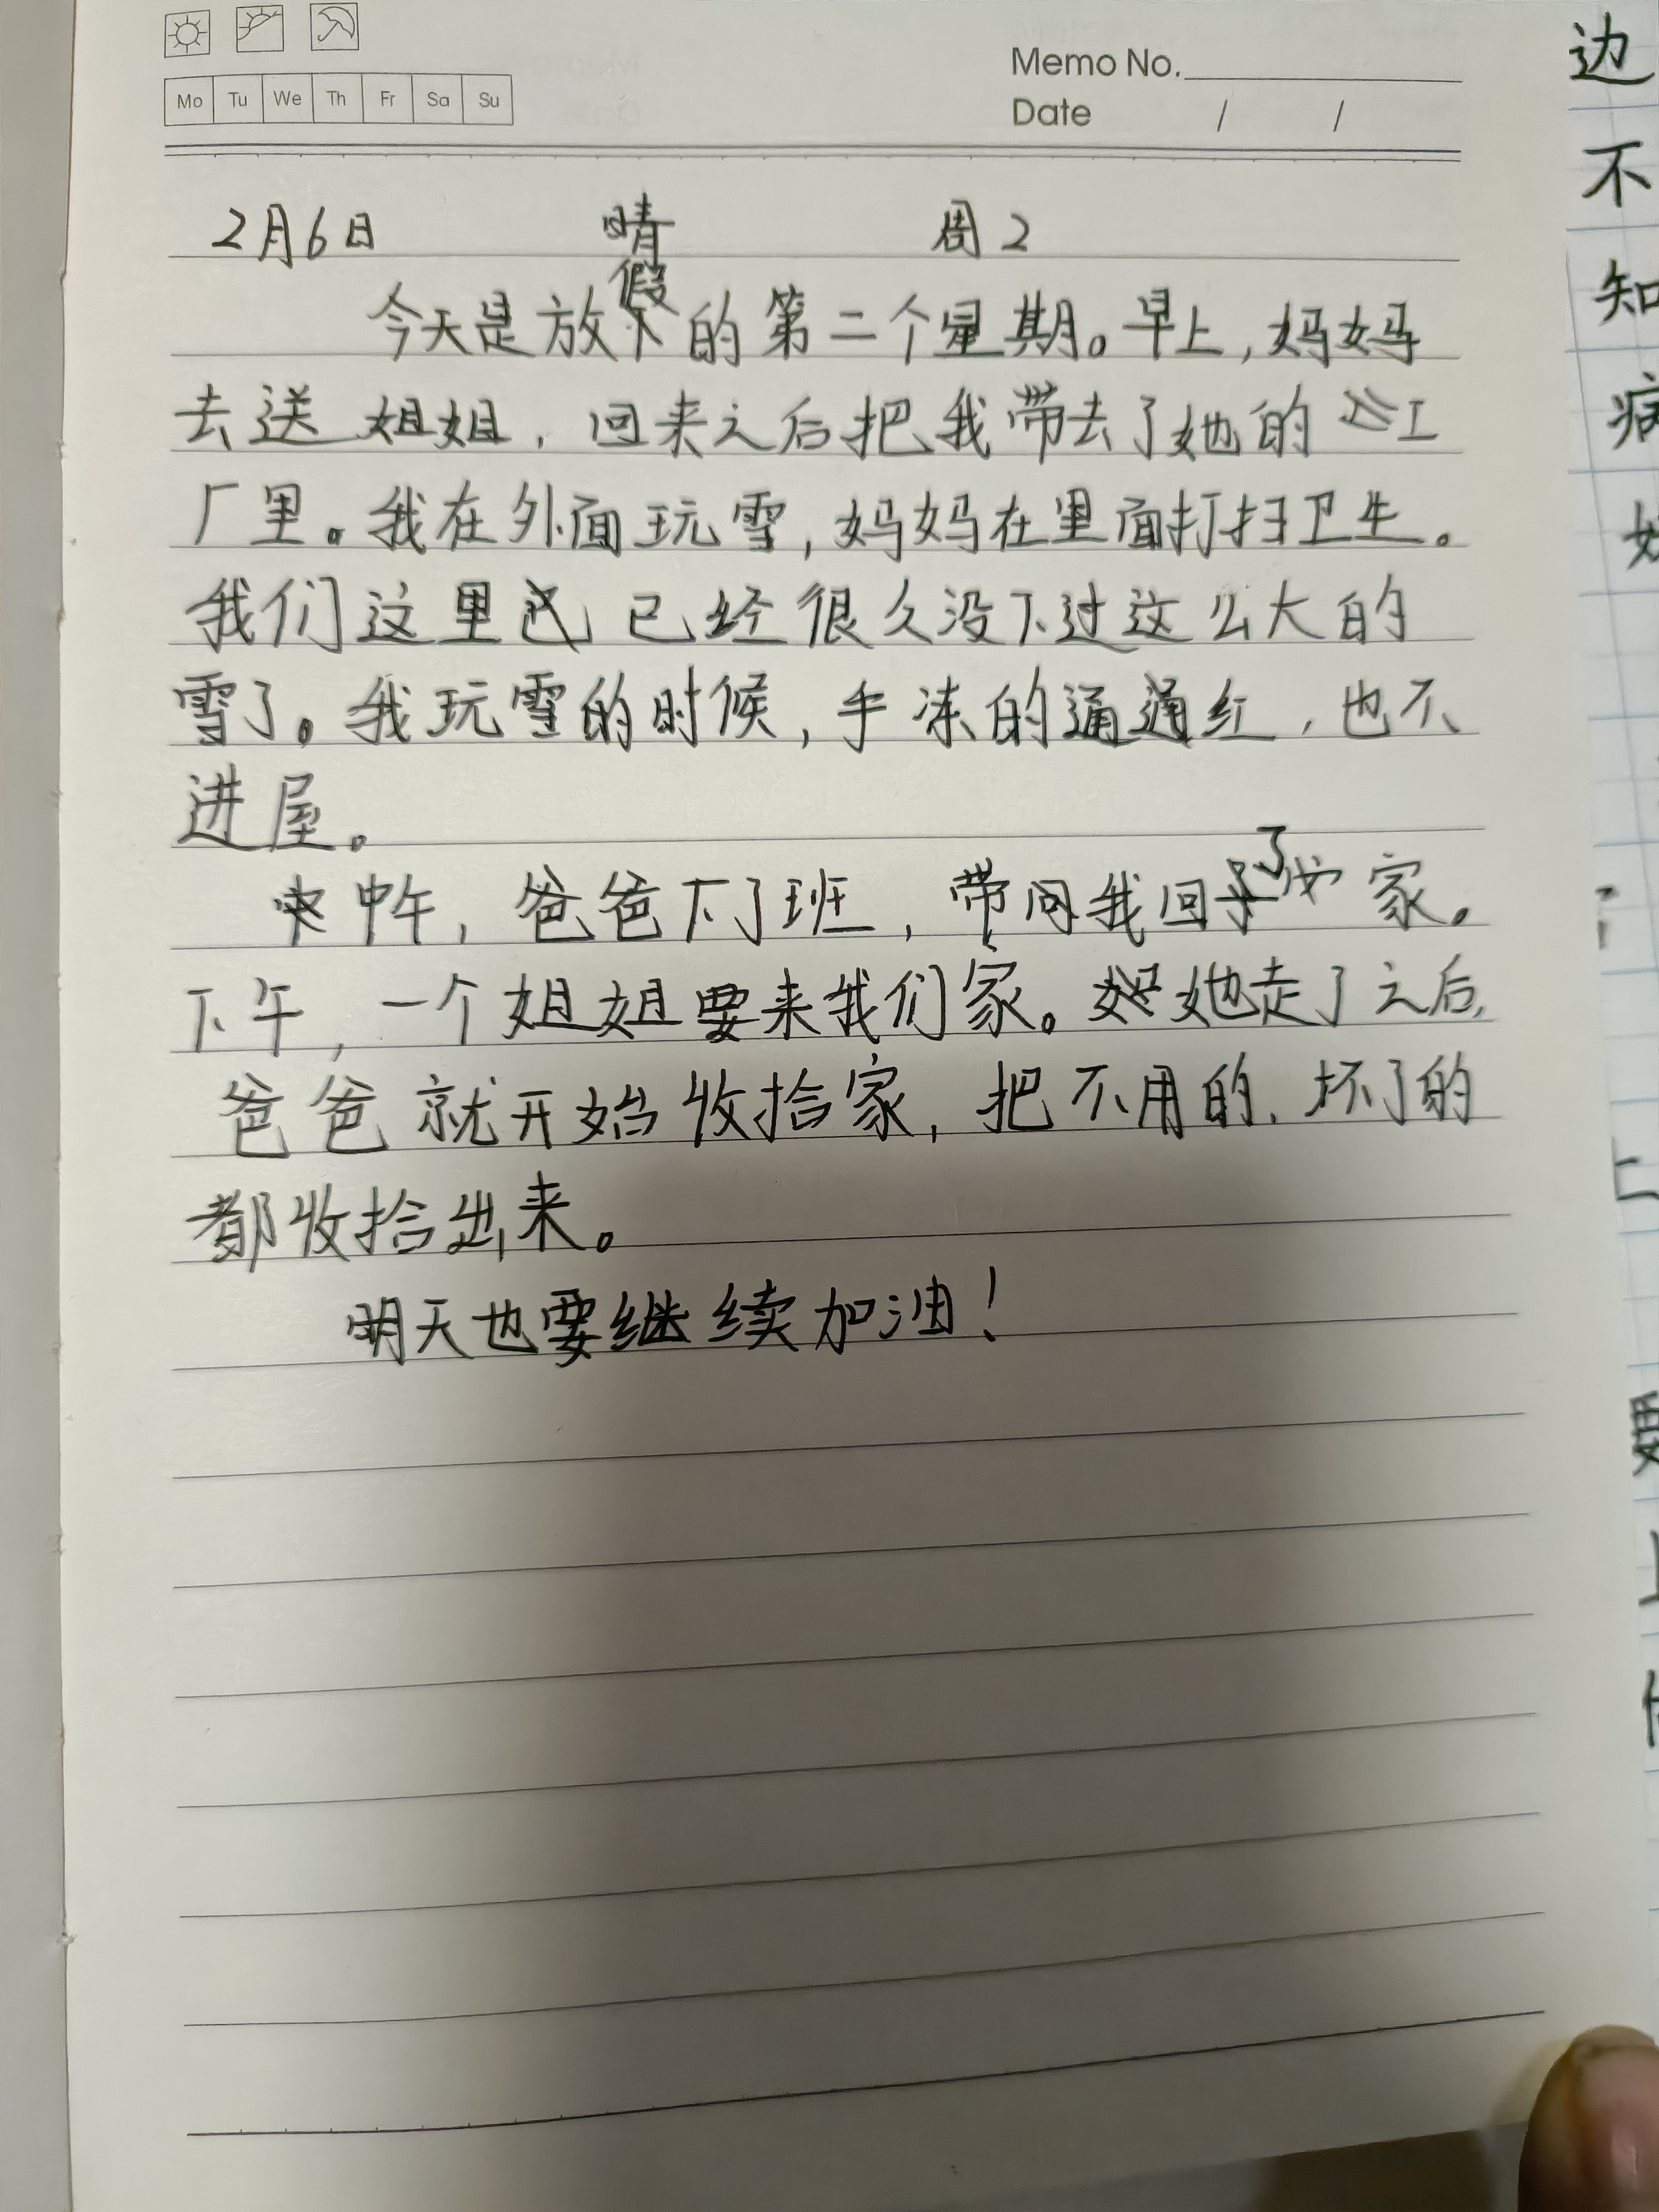 Mo Tu We Th Fr Sa Su
Memo No.
Date / /
2月6日 晴 周2
今天是放假的第二个星期。早上,妈妈
去送姐姐,回来之后把我带去了她的工
厂里。我在外面玩雪,妈妈在里面打扫卫生。
我们这里已经很久没下过这么大的
雪了。我玩雪的时候,手冻的通通红,也不
进屋。
中午,爸爸下了班,带问我回了家。
下午,一个姐姐要来我们家。她走了之后,
爸爸就开始收拾家,把不用的、坏了的
都收拾出来。
明天也要继续加油!
边
不
知